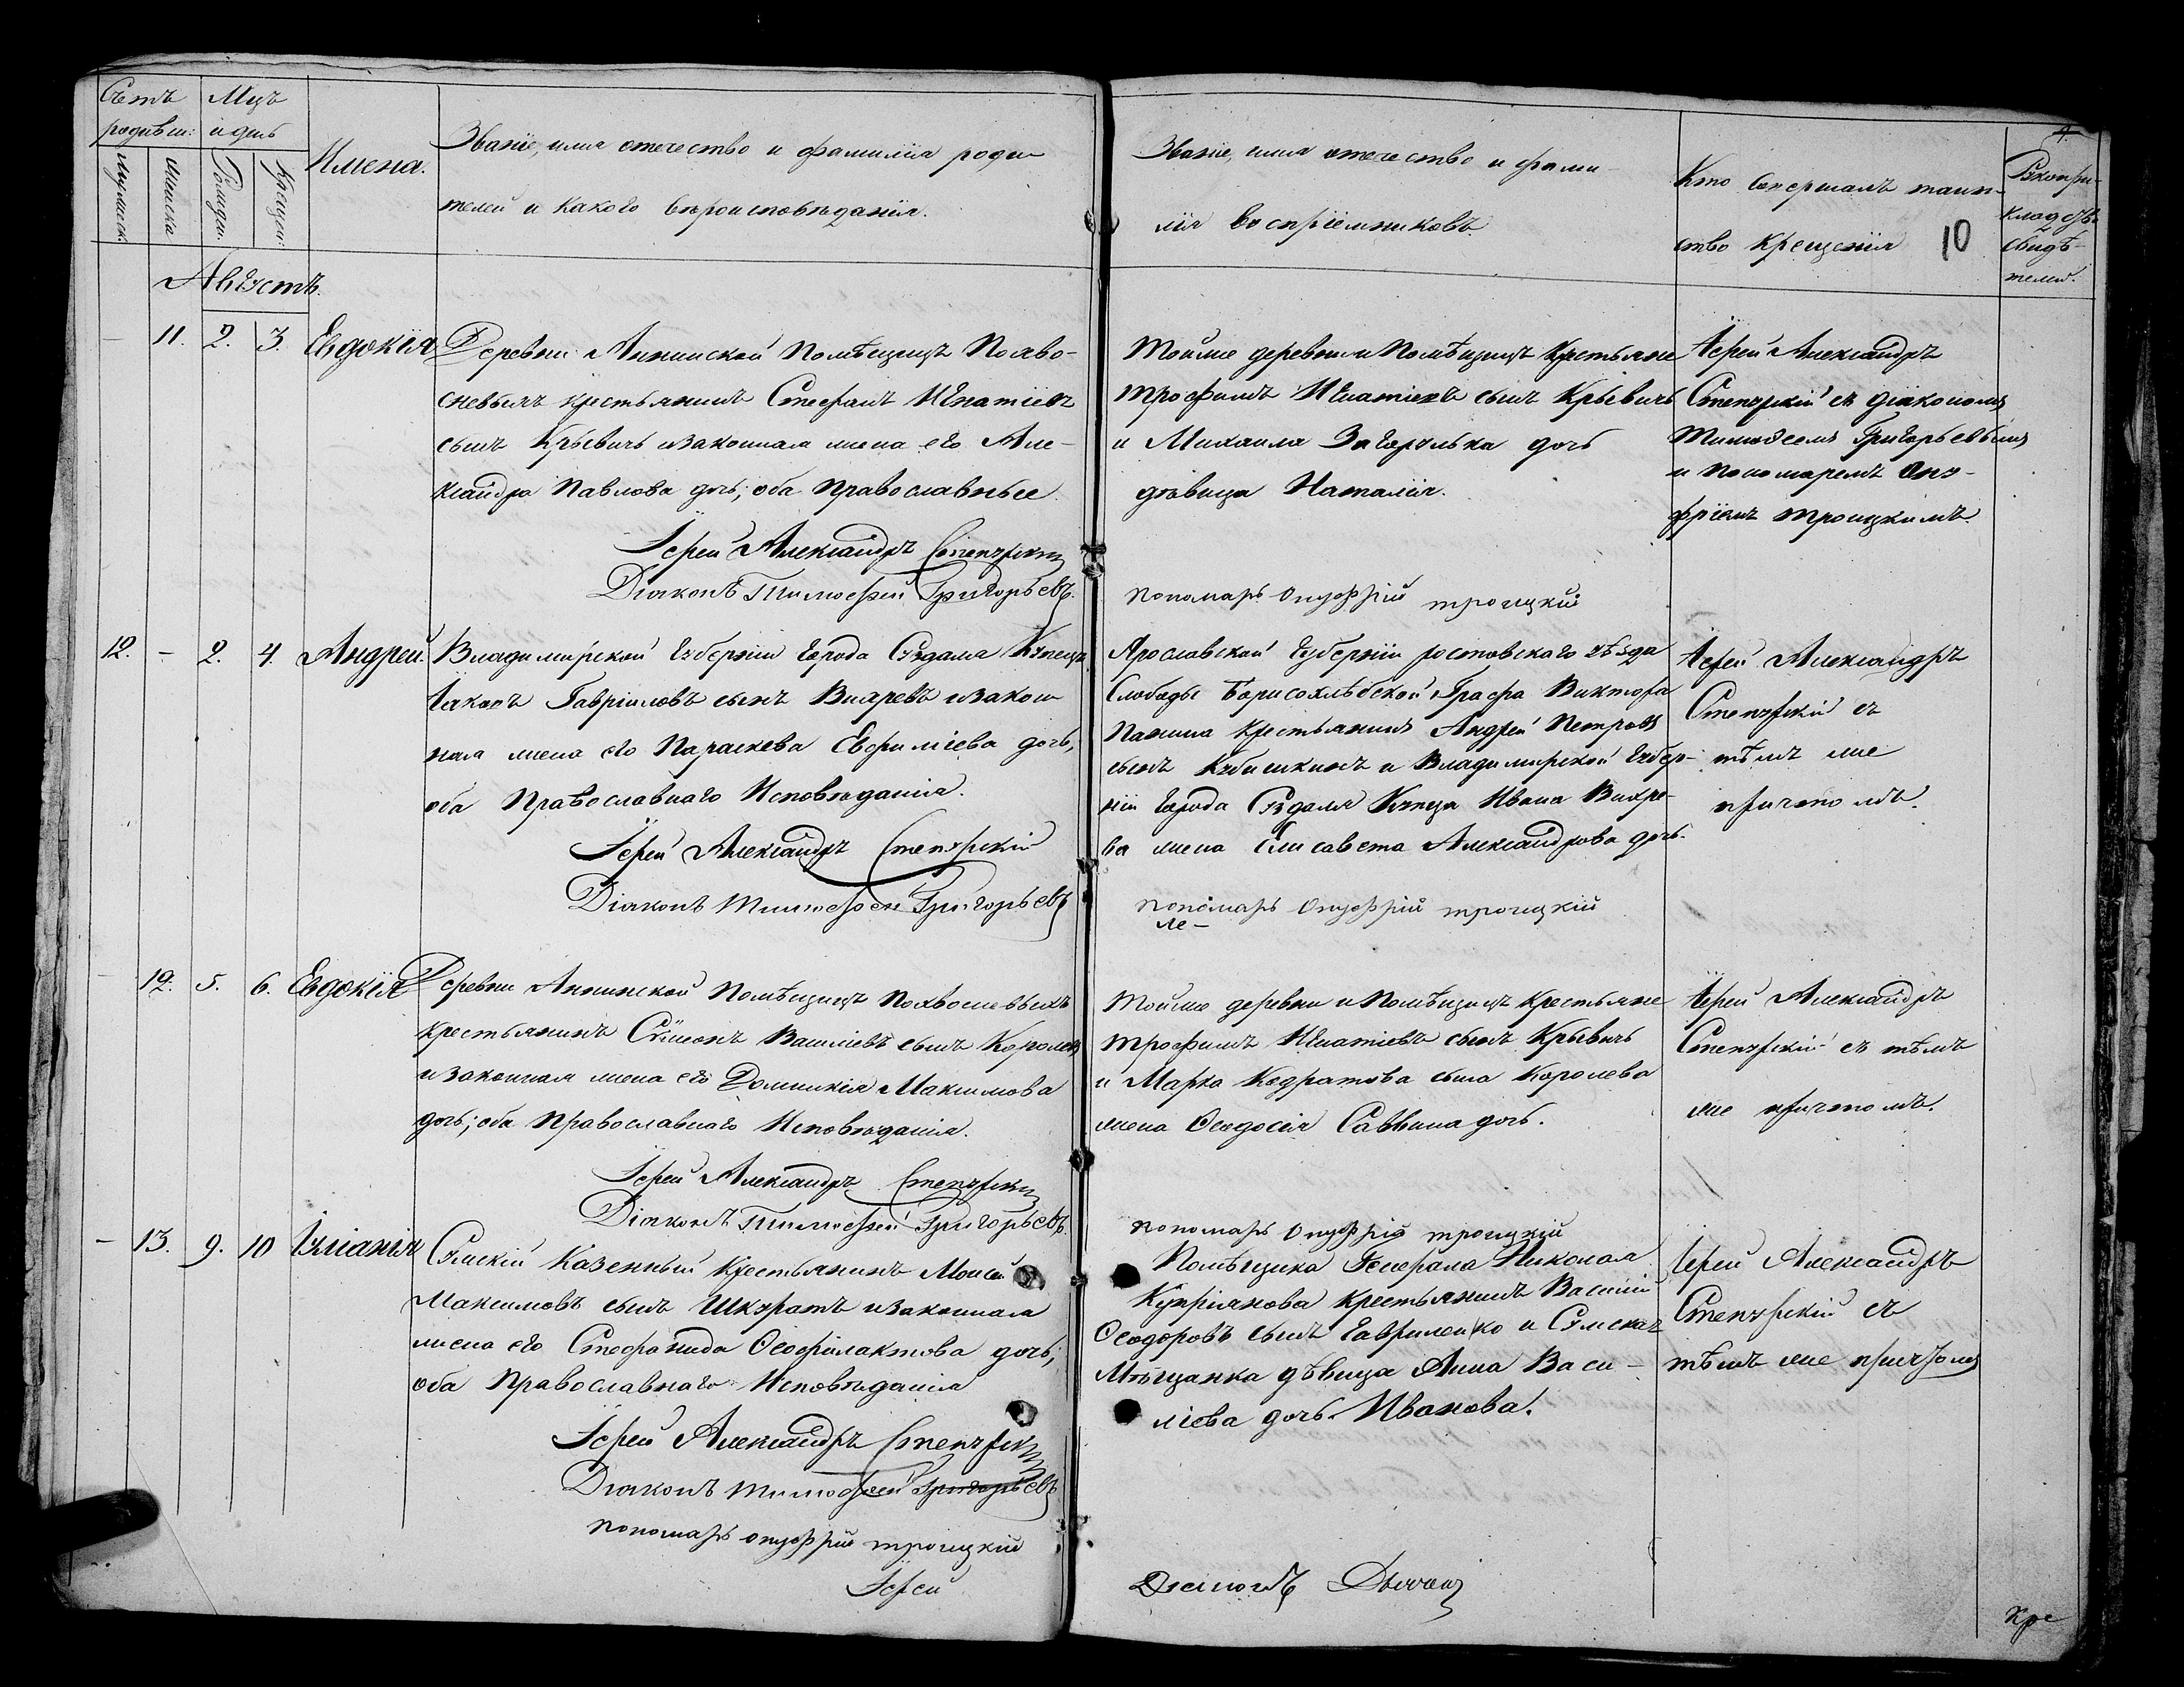 Счетъ
родивш:
Мцъ
и день
Мужеск:
Женска
Рожден:
Крещен:
Имена.
Званіе, имя отечество и фамилія роди
телей и какого вѣроисповѣданія.
Званіе, имя отечество и фами-
лія воспріемниковъ.
Кто совершалъ таин-
ство крещенія
10
4.
Рукопри-
кладств.
свидѣ-
телей.
Августъ.
11. 2. 3. Евдокія
Деревни Аннинской Помѣщицъ Похво-
сневыхъ крестьянинъ Стефанъ Игнатіевъ
сынъ Крѣвичь и законная жена его Але-
ксандра Павлова дочь; оба Православные
Іерей Александръ Степурскій
Діяконъ Тимоѳей Григорьевъ.
Тойже деревни и Помѣщицъ Крестьяне
Трофимъ Игнатіевъ сынъ Крѣвичь
и Михаила Загорулька дочь
дѣвица Наталія.
пономарь Онуфрій троицкій
Іерей Александръ
Степурскій съ діякономъ
Тимоѳеемъ Григорьевымъ
и пономаремъ Ону-
фріемъ Троицкимъ.
12. - 2. 4. Андрей.
Владимірской губерніи города Суздаля Купецъ
Іаковъ Гавріиловъ сынъ Вихревъ и закон
ная жена его Параскева Евфиміева дочь,
оба Православнаго Исповѣданія.
Іерей Александръ Степурскій
Діяконъ Тимоѳей Григорьевъ
Ярославской губерніи ростовскаго уѣзда
Слободы Борисоглѣбской Графа Виктора
Панина Крестьянинъ Андрей Петровъ
сынъ Кубышкинъ и Владимирской губер-
ніи города Суздаля Купца Ивана Вихре-
ва жена Елисавета Александрова дочь.
пономарь Онуфрій троицкій
Іерей Александръ
Степурскій съ
тѣмъ же
причтомъ.
12. 5. 6. Евдокія
Деревни Аннинской Помѣщицъ Похвосневыхъ
крестьянинъ Сѵмеонъ Василіевъ сынъ Королевъ
и законная жена его Домникія Максимова
дочь; оба Православнаго Исповѣданія.
Іерей Александръ Степурскій
Діяконъ Тимоѳей Григорьевъ.
Тойже деревни и Помѣщицъ Крестьяне
Трофимъ Игнатіевъ сынъ Крѣвичь
и Марка Кодратова сына Королева
жена Ѳеодосія Саввина дочь.
пономарь Онуфрій троицкій
Іерей Александръ
Степурскій съ тѣмъ
же причтомъ.
- 13. 9. 10 Іуліанія
Сумскій Казенный Крестьянинъ Моисей
Максимовъ сынъ Шкуратъ и законная
жена его Стефанида Ѳеофилактова дочь;
оба Православнаго Исповѣданія
Іерей Александръ Степурскій
Діяконъ Тимоѳей Григорьевъ
пономарь онуфрій троицкій
Іерей
Помѣщика Генерала Николая
Купріянова крестьянинъ Василій
Ѳеодоровъ сынъ Гавриленко и Сумская
Мѣщанка дѣвица Анна Васи-
ліева дочь Иванова.
Іерей Александръ
Степурскій съ
тѣмъ же причтомъ
Кре